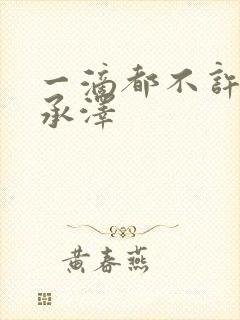 一滴都不許
承澤
黃春燕